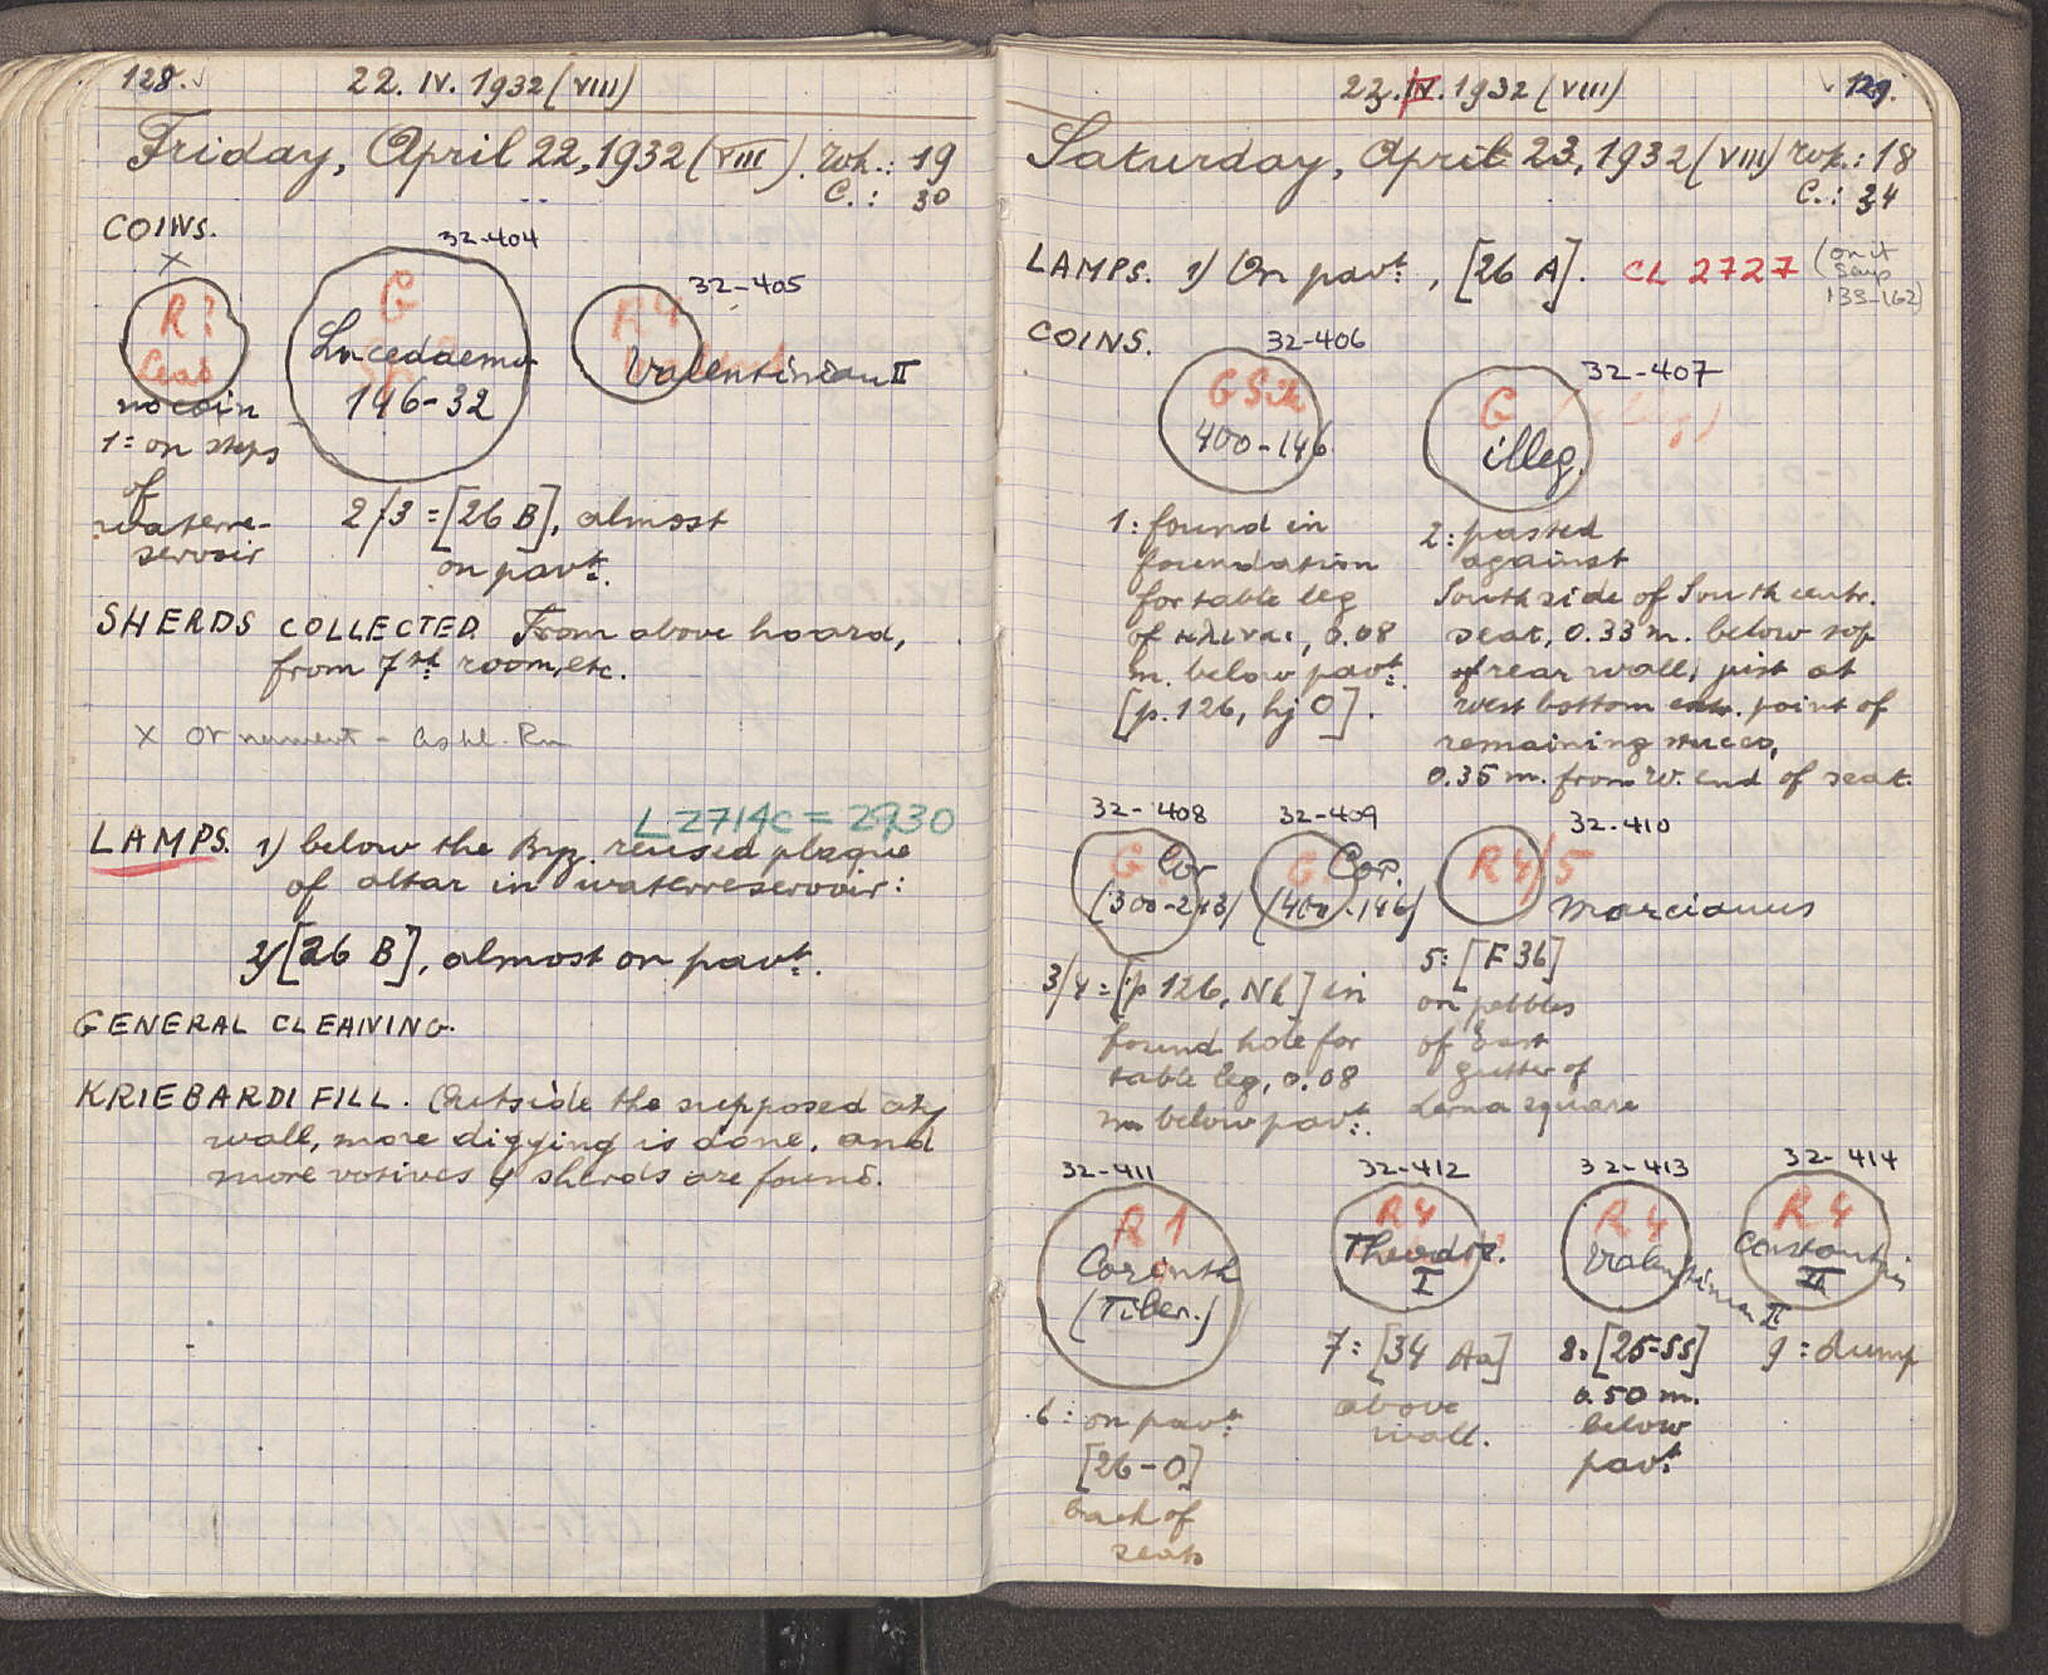 128.
22. IV. 1932 (VIII)
Friday, April 22, 1932 (VIII). Wk.: 19
C.: 30
COINS.
x
32-404
32-405
R?
G
R4
Lacedaemon
146-32
Valentinian II
no coin
1: on steps
of
waterre-
servoir
2/3 = [26 B], almost
on pavt.
SHERDS COLLECTED. From above hoard,
from 7th room, etc.
x ornament -
L 2714c = 2730
LAMPS. 1) below the Byz. reused plaque
of altar in waterreservoir:
2) [26 B], almost on pavt.
GENERAL CLEANING.
KRIEBARDI FILL. Outside the supposed city
wall, more digging is done, and
more votives & sherds are found.
23. IV. 1932 (VIII)
129.
Saturday, April 23, 1932 (VIII) Wk.: 18
C.: 34
LAMPS. 1) On pavt., [26 A]. CL 2727 (on it
says
133-162)
COINS.
32-406
32-407
G Sik
400-146
G
illeg.
1: found in
foundation
for table leg
of κλιναι, 0.08
m. below pavt.
[p. 126, hj O].
2: pasted
against
South side of South centr.
seat, 0.33 m. below top
of rear wall, just at
west bottom point of
remaining stucco,
0.35 m. from W. end of seat.
32-408
32-409
32-410
G Cor
(300-243)
G Cor.
(400-146)
R 4/5
Marcianus
3/4 = [p 126, Nk] in
found hole for
table leg, 0.08
m below pavt.
5: [F 36]
on pebbles
of East
gutter of
Lerna square
32-411
32-412
32-413
32-414
R 1
Corinth
(Tiber.)
R4
Theodos.
I
R 4
Valentinian II
R 4
Constantius
II
6: on pavt.
[26-O]
back of
seats
7: [34 Aa]
above
wall.
8: [25-SS]
0.50 m.
below
pavt.
9: dump